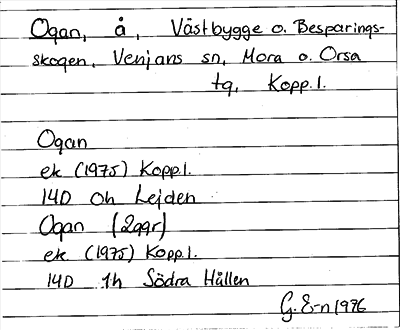 Ogan, å, Västbygge o. Besparings-
skogen, Venjans sn, Mora o. Orsa
tg, Kopp.l.
Ogan
ek (1975) Kopp.l.
14D 0h Lejden
Ogan (2ggr)
ek (1975) Kopp.l.
14D 1h Södra Hållen
G. E-n 1976